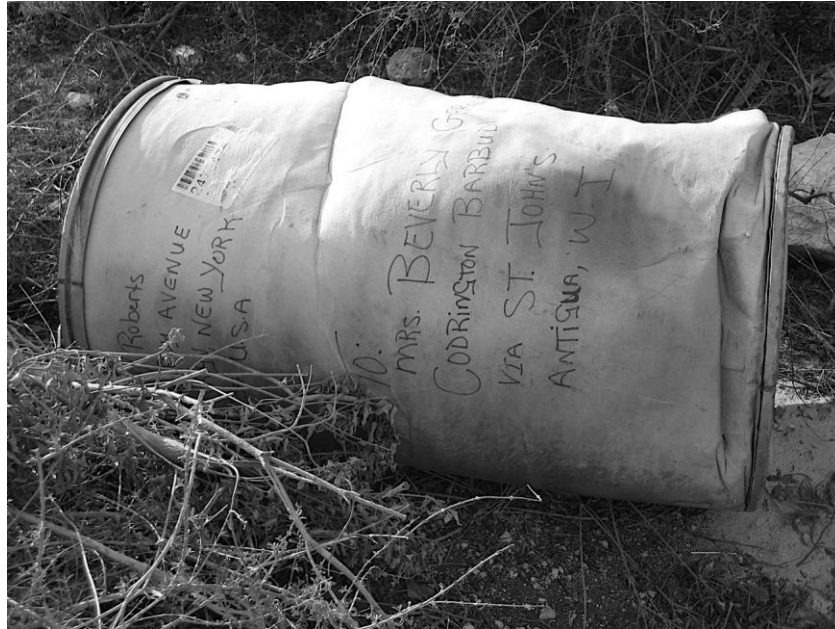 Roberts
AVENUE
NEW YORK
U.S.A
TO:
MRS. BEVERLY
CODRINGTON BARBU
VIA ST. JOHN'S
ANTIGUA, W.I